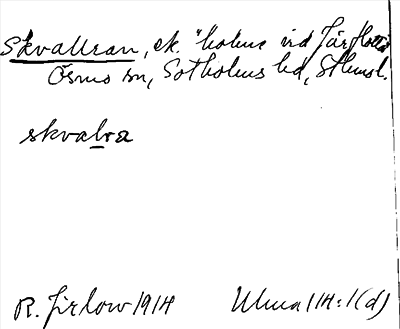 Skvallran, sk. "holme vid Järflotta
Ösmo sn, Sotholms hd, Sthmsl.
skvalra
R. Jirlow 1914 Ulma 114:1(d)